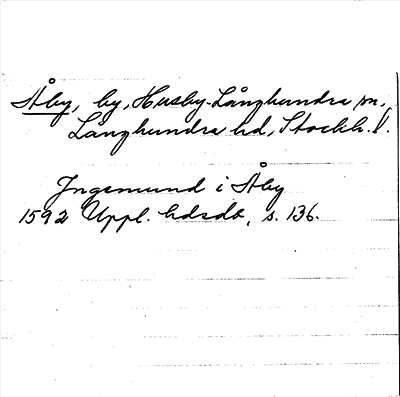 Åby, by, Husby-Långhundra sn,
Långhundra hd, Stockh. l.
Ingemund i Åby
1592 Uppl. hdsdb, s. 136.